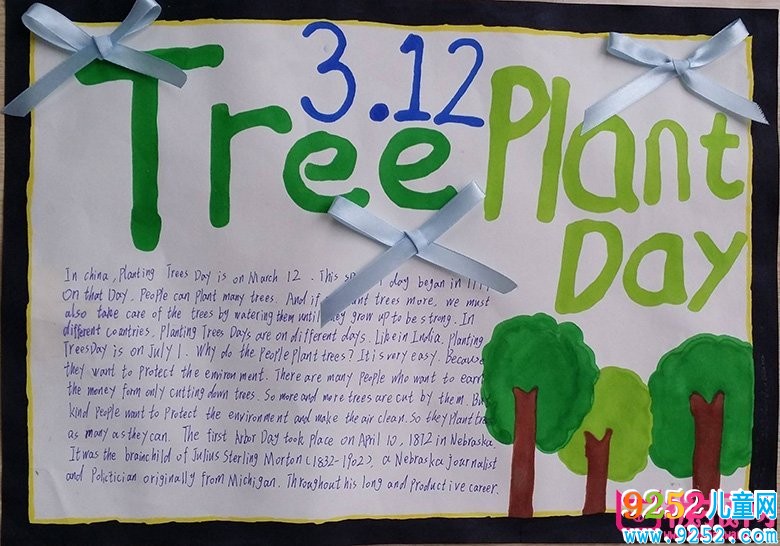 3.12
Tree Plant
Day
In china, Planting Trees Day is on March 12. This day began in
on that Day. People can plant many trees. And if trees more, we must
also take care of the trees by watering them until they grow up to be strong. In
different countries, Planting Trees Days are on different days. Like in India, Planting
Trees Day is on July 1. Why do the people plant trees? It is very easy. Because
they want to protect the environment. There are many people who want to earn
the money form only cutting down trees. So more and more trees are cut by them. But
kind people want to protect the environment and make the air clean. So they plant
as many as they can. The first Arbor Day took place on April 10, 1872 in Nebraska.
It was the brainchild of Julius Sterling Morton (1832-1902), a Nebraska journalist
and Politictian originally from Michigan. Throughout his long and productive career.
9252儿童网
www.9252.com